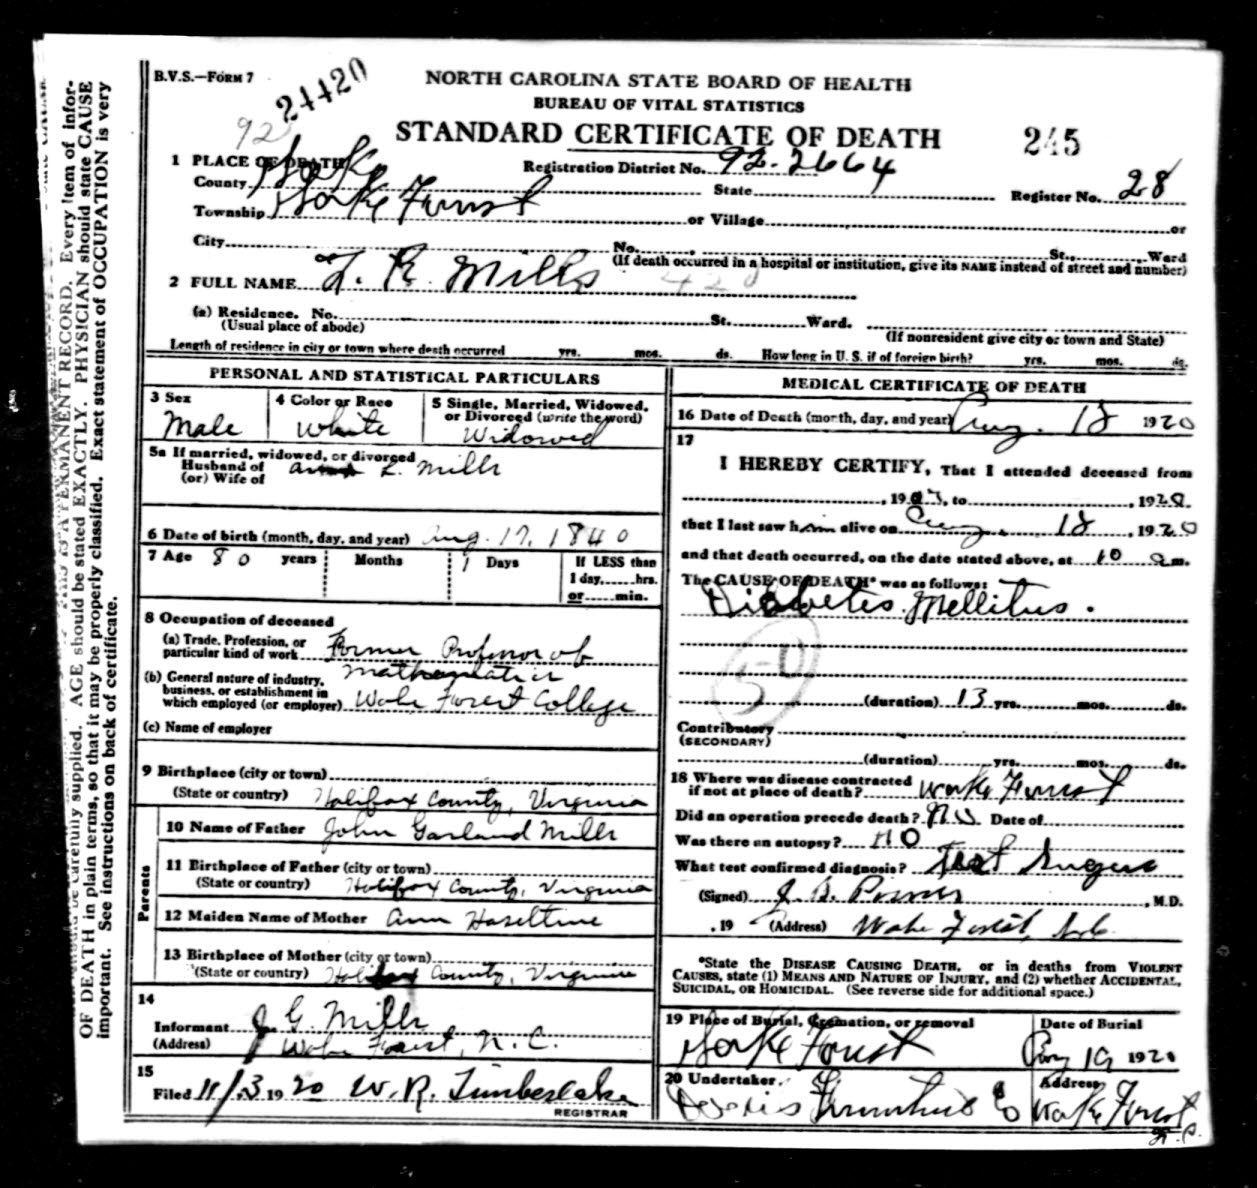 B.V.S.—FORM 7
24420
NORTH CAROLINA STATE BOARD OF HEALTH
BUREAU OF VITAL STATISTICS
92
STANDARD CERTIFICATE OF DEATH
245
1 PLACE OF DEATH
Registration District No. 92-2664
County Wake State Register No. 28
Township Wake Forest or Village or
City No. St., Ward
(If death occurred in a hospital or institution, give its NAME instead of street and number)
2 FULL NAME L. R. Mills
(a) Residence. No. St. Ward.
(Usual place of abode)
(If nonresident give city or town and State)
Length of residence in city or town where death occurred yrs. mos. ds. How long in U. S. if of foreign birth? yrs. mos. ds.
PERSONAL AND STATISTICAL PARTICULARS
3 Sex
Male
4 Color or Race
White
5 Single, Married, Widowed, or Divorced (write the word)
Widowed
5a If married, widowed, or divorced
Husband of L. Mills
(or) Wife of
6 Date of birth (month, day, and year) Aug. 17, 1840
7 Age 80 years Months 1 Days
If LESS than
1 day, hrs.
or min.
8 Occupation of deceased
(a) Trade, Profession, or
particular kind of work Former Professor of
Mathematics
(b) General nature of industry,
business, or establishment in
which employed (or employer) Wake Forest College
(c) Name of employer
9 Birthplace (city or town)
(State or country) Halifax County, Virginia
Parents
10 Name of Father John Garland Mills
11 Birthplace of Father (city or town)
(State or country) Halifax County, Virginia
12 Maiden Name of Mother Ann Haseltine
13 Birthplace of Mother (city or town)
(State or country) Halifax County, Virginia
14
Informant J G. Mills
(Address) Wake Forest, N.C.
15
Filed 11/3 1920 W. R. Timberlake
REGISTRAR
MEDICAL CERTIFICATE OF DEATH
16 Date of Death (month, day, and year) Aug. 18 1920
17
I HEREBY CERTIFY, That I attended deceased from
, 1907, to , 1920
that I last saw him alive on Aug. 18, 1920
and that death occurred, on the date stated above, at 10 a m.
The CAUSE OF DEATH* was as follows:
Diabetes Mellitus.
50
(duration) 13 yrs. mos. ds.
Contributory
(SECONDARY)
(duration) yrs. mos. ds.
18 Where was disease contracted
if not at place of death? Wake Forest
Did an operation precede death? No Date of
Was there an autopsy? No
What test confirmed diagnosis? Test Sugar
(Signed) J. B. Powers, M.D.
, 19 (Address) Wake Forest, N.C.
*State the DISEASE CAUSING DEATH, or in deaths from VIOLENT
CAUSES, state (1) MEANS AND NATURE OF INJURY, and (2) whether ACCIDENTAL,
SUICIDAL, OR HOMICIDAL. (See reverse side for additional space.)
19 Place of Burial, Cremation, or removal
Wake Forest
Date of Burial
Aug 19 1920
20 Undertaker
Furniture Co
Address
Wake Forest
N.C.
OF DEATH in plain terms, so that it may be properly classified. Exact statement of OCCUPATION is very
important. See instructions on back of certificate.